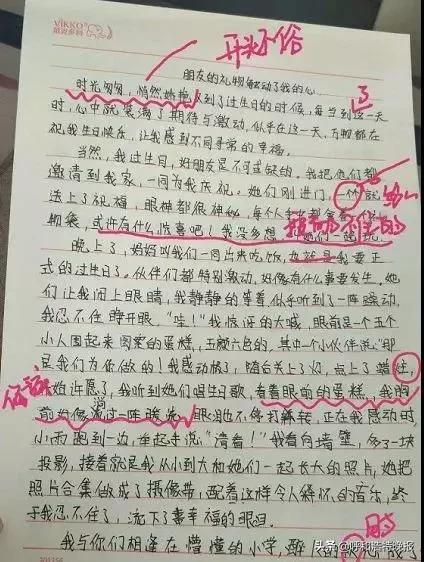 VIKKO
开头不俗
朋友的礼物触动了我的心
时光匆匆,恍然
到了过生日的时候,每当到这一天
了
时,心中就装满了期待与激动,似乎在这一天,万物都在
祝我生日快乐,让我感到不同寻常的幸福。
当然,我过生日,好朋友是不可或缺的。我把他们都
邀请到我家,一同为我庆祝。她们刚进门,一
就
送上了祝福,眼神都很神秘,每个人手
都
期袋,或许有什么惊喜吧!我没多想,
她们一
玩。
晚上了,妈妈叫我们一同去吃饭,也就是我要正
式的过生日了。伙伴们都特别激动,好像有什么事要发生。她
们让我闭上眼睛,我静静的等着似乎听到了一阵躁动,
我忍不住睁开眼,“哇!”我惊讶的大喊,眼前是一个五个
小人围起来图案的蛋糕,五颜六色的,其中一个小伙伴说“那
是我们为你做的!我感动极了,随后关上了灯,点上了蜡
始许愿了,我听到她们唱生日歌,看着眼前的蛋糕,我的
一阵暖
眼泪也不停打转转,正在我感动时,
小雨跑到一边,举起手说“请看!”我看向墙壁,多了一块
投影,接着就是我从小到大和她们一起长大的照片,她把
照片合集做成了摄像带,配着这样令人释怀的音乐,终
于我忍不住了,流下了幸福的眼泪。
我与你们相逢在懵懂的小学,
头条 @呼和浩特晚报